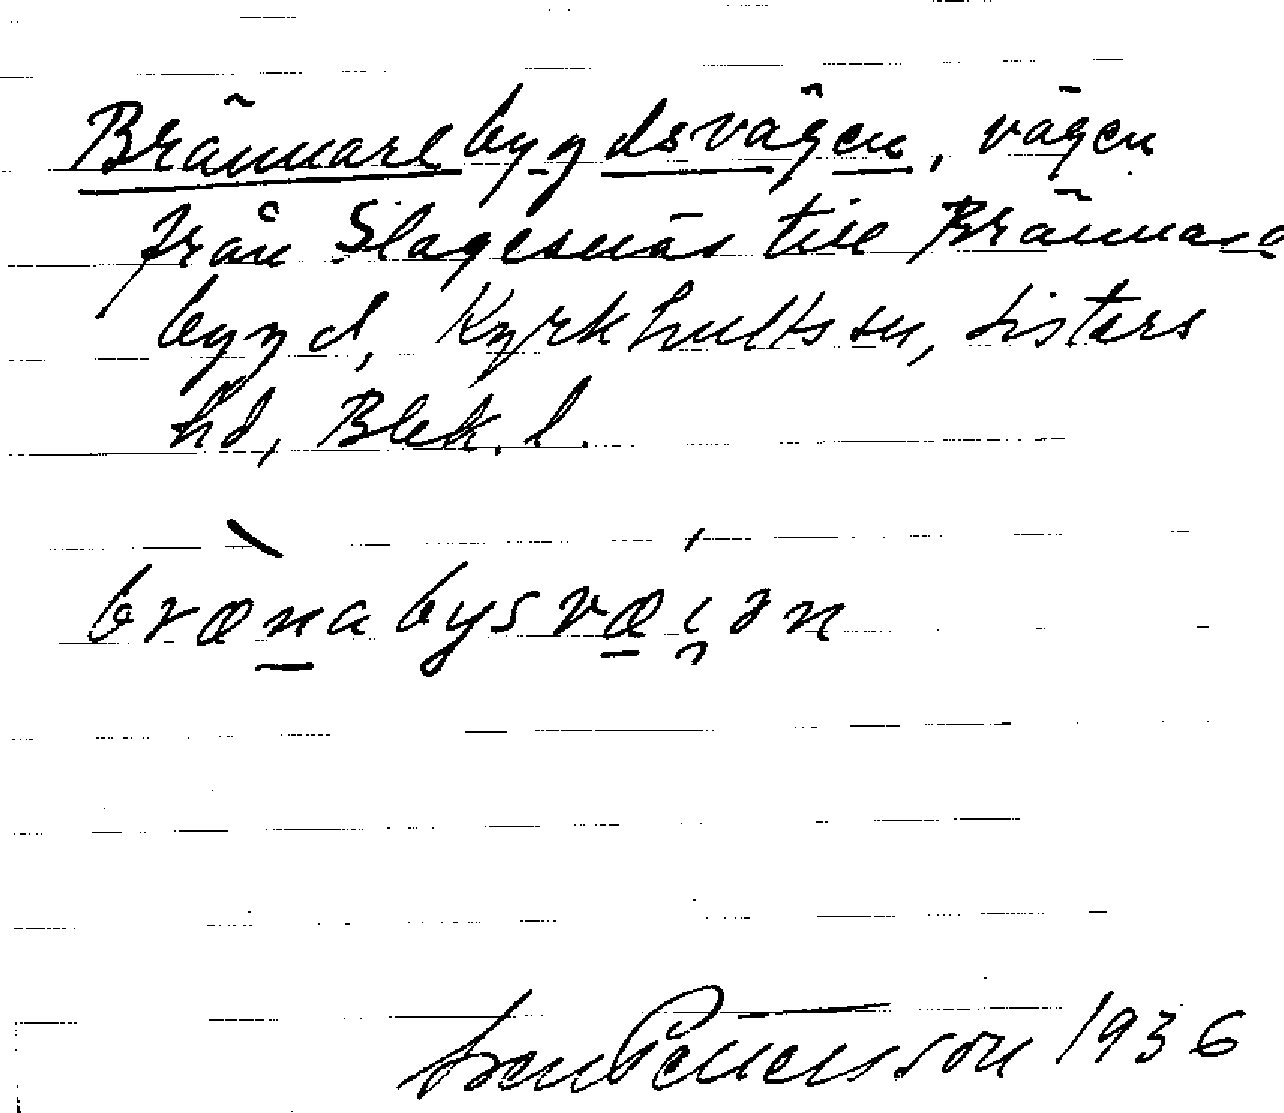 Brännarebygdsvägen, vägen
från Slagesnäs till Brännare
bygd, Kyrkhults sn, Listers
hd, Blek. l.
brænabysvæi̯ən
Sven Pettersson 1936